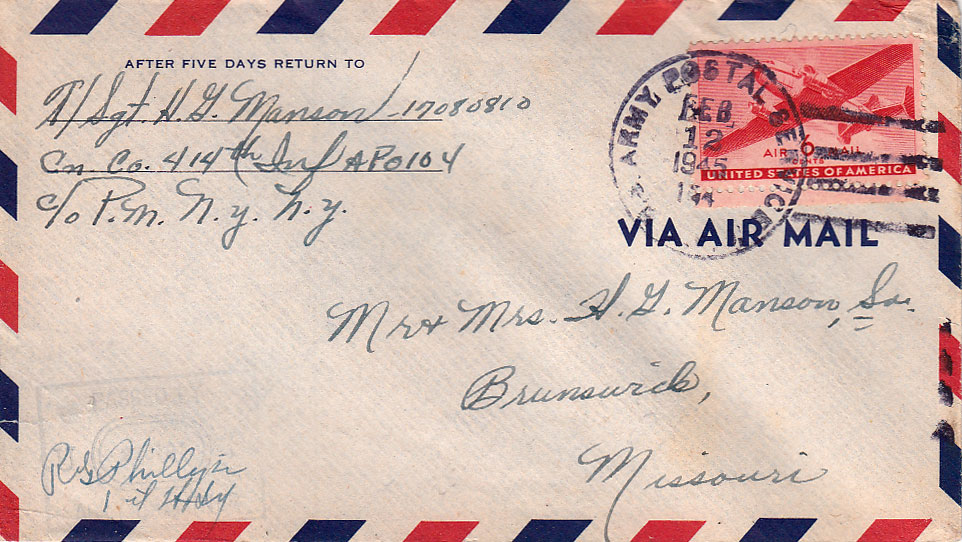 AFTER FIVE DAYS RETURN TO
T/Sgt. H. G. Manson 17080810
Cn Co. 414th Inf APO 104
c/o P.M. N.y. N.y.
U.S. ARMY POSTAL SERVICE
FEB
12
1945
AIR 6 MAIL
CENTS
UNITED STATES OF AMERICA
VIA AIR MAIL
Mr & Mrs. H. G. Manson, Sr.
Brunswick,
Missouri
PASSED BY
R G Phillips
1st Lt